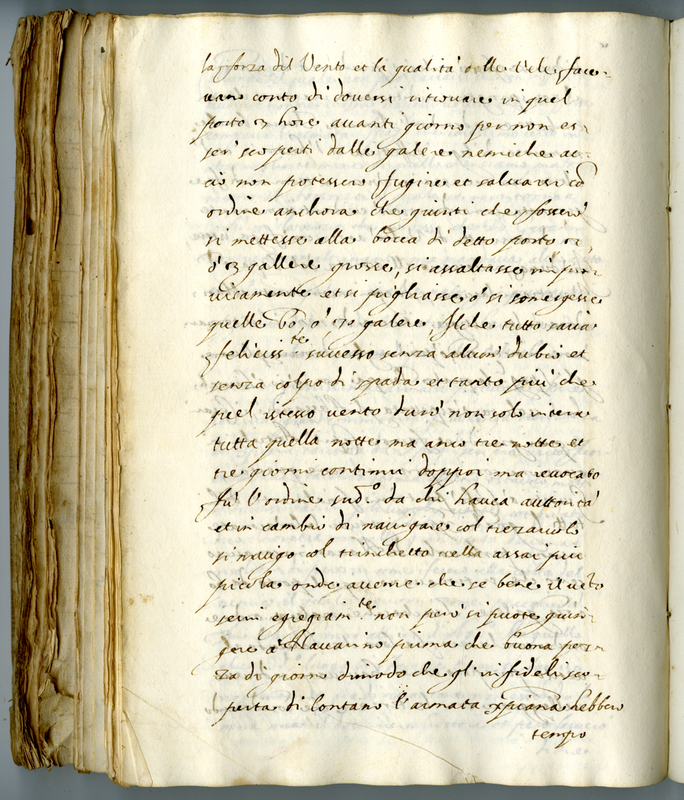 la forza del Vento et la qualità delle Vele, face-
vano conto di doversi ritrovare in quel
porto 3 hore avanti giorno per non es-
ser scoperti dalle galere nemiche ac-
ciò non potessero fugire et salvarsi cō
ordine anchora che giunti che fossero
si mettesse alla bocca di detto porto 2,
ò 3 gallere grosse, si assaltasse impro-
visamente et si pigliasse ò si somergesse
quelle 60, ò 70 galere. Il che tutto saria
feliciss.te successo senza alcun dubio et
senza colpo di spada et tanto più che
quel istesso vento durò non solo intera
tutta quella notte ma anco tre notte et
tre giorni continui doppoi ma revocato
fù l'ordine sud.o da chi havea auttorità
et in cambio di navigare col
si navigò col trinchetto vella assai più
picola onde avenne che se bene il vēto
servì egregiam.te non però si puote giun-
gere à Navarino prima che buona pez-
za di giorno dimodo che gl'infideli sco-
perta di lontano l'armata xpiana hebbero
tempo